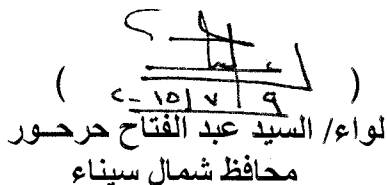 ( )
٢٠١٥/٧/٩
لواء/ السيد عبد الفتاح حرحور
محافظ شمال سيناء